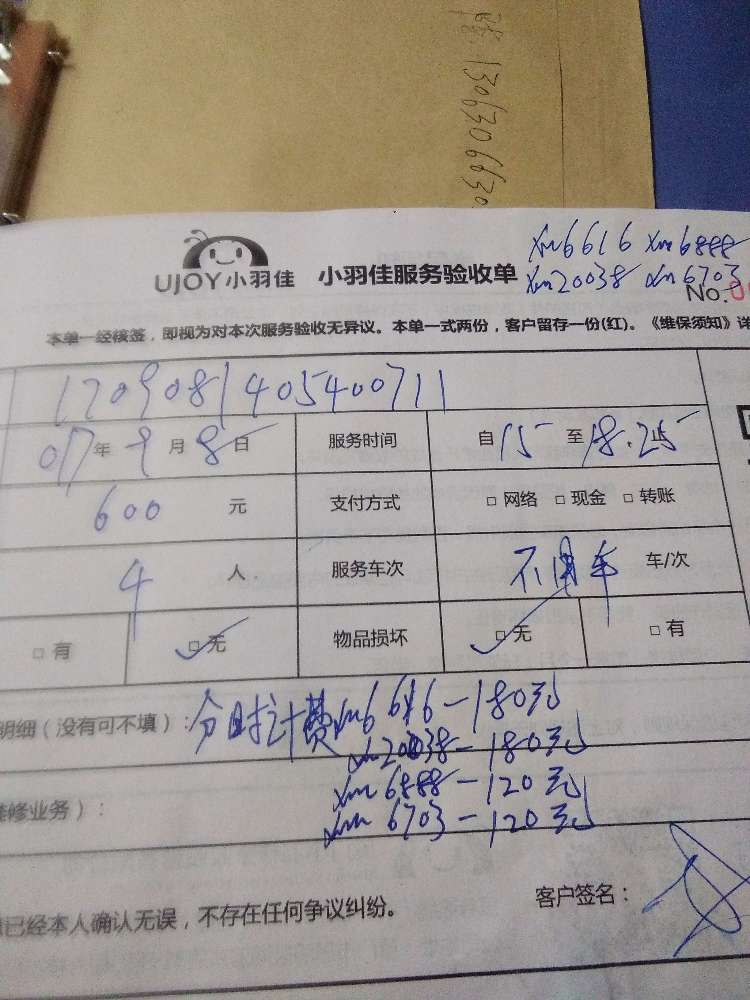 13063066630
xm6616 xm6888
UJOY小羽佳 小羽佳服务验收单 xm20038 xm6703
No.0
本单一经核签，即视为对本次服务验收无异议。本单一式两份，客户留存一份(红)。《维保须知》详
170908140540071​1
017年9月8日 服务时间 自15至18.25止
600元 支付方式 □网络 □现金 □转账
4人 服务车次 不用车 车/次
□有 ☑无 物品损坏 ☑无 □有
明细（没有可不填）：分时计费xm6616-180元
xm20038-180元
xm6888-120元
维修业务）：
xm6703-120元
客户签名：
已经本人确认无误，不存在任何争议纠纷。